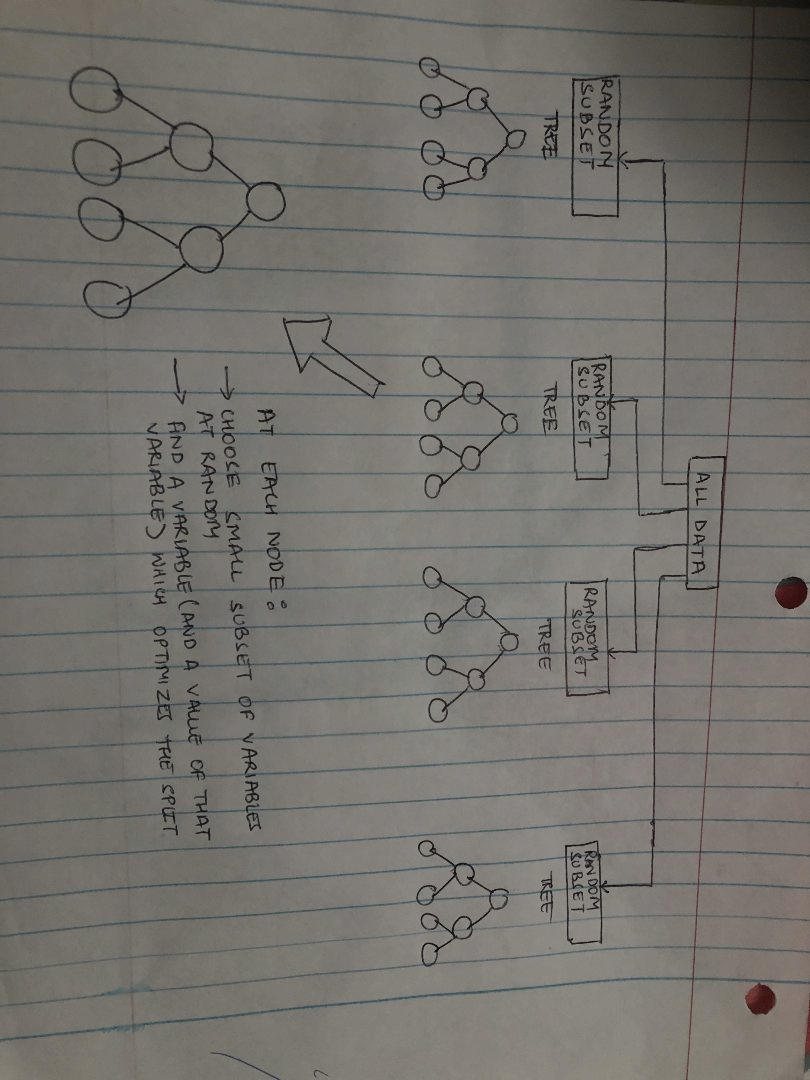 ALL DATA
RANDOM
SUBSET
RANDOM
SUBSET
RANDOM
SUBSET
RANDOM
SUBSET
TREE
TREE
TREE
TREE
AT EACH NODE:
→ CHOOSE SMALL SUBSET OF VARIABLES
AT RANDOM
→ FIND A VARIABLE (AND A VALUE OF THAT
VARIABLE) WHICH OPTIMIZES THE SPLIT